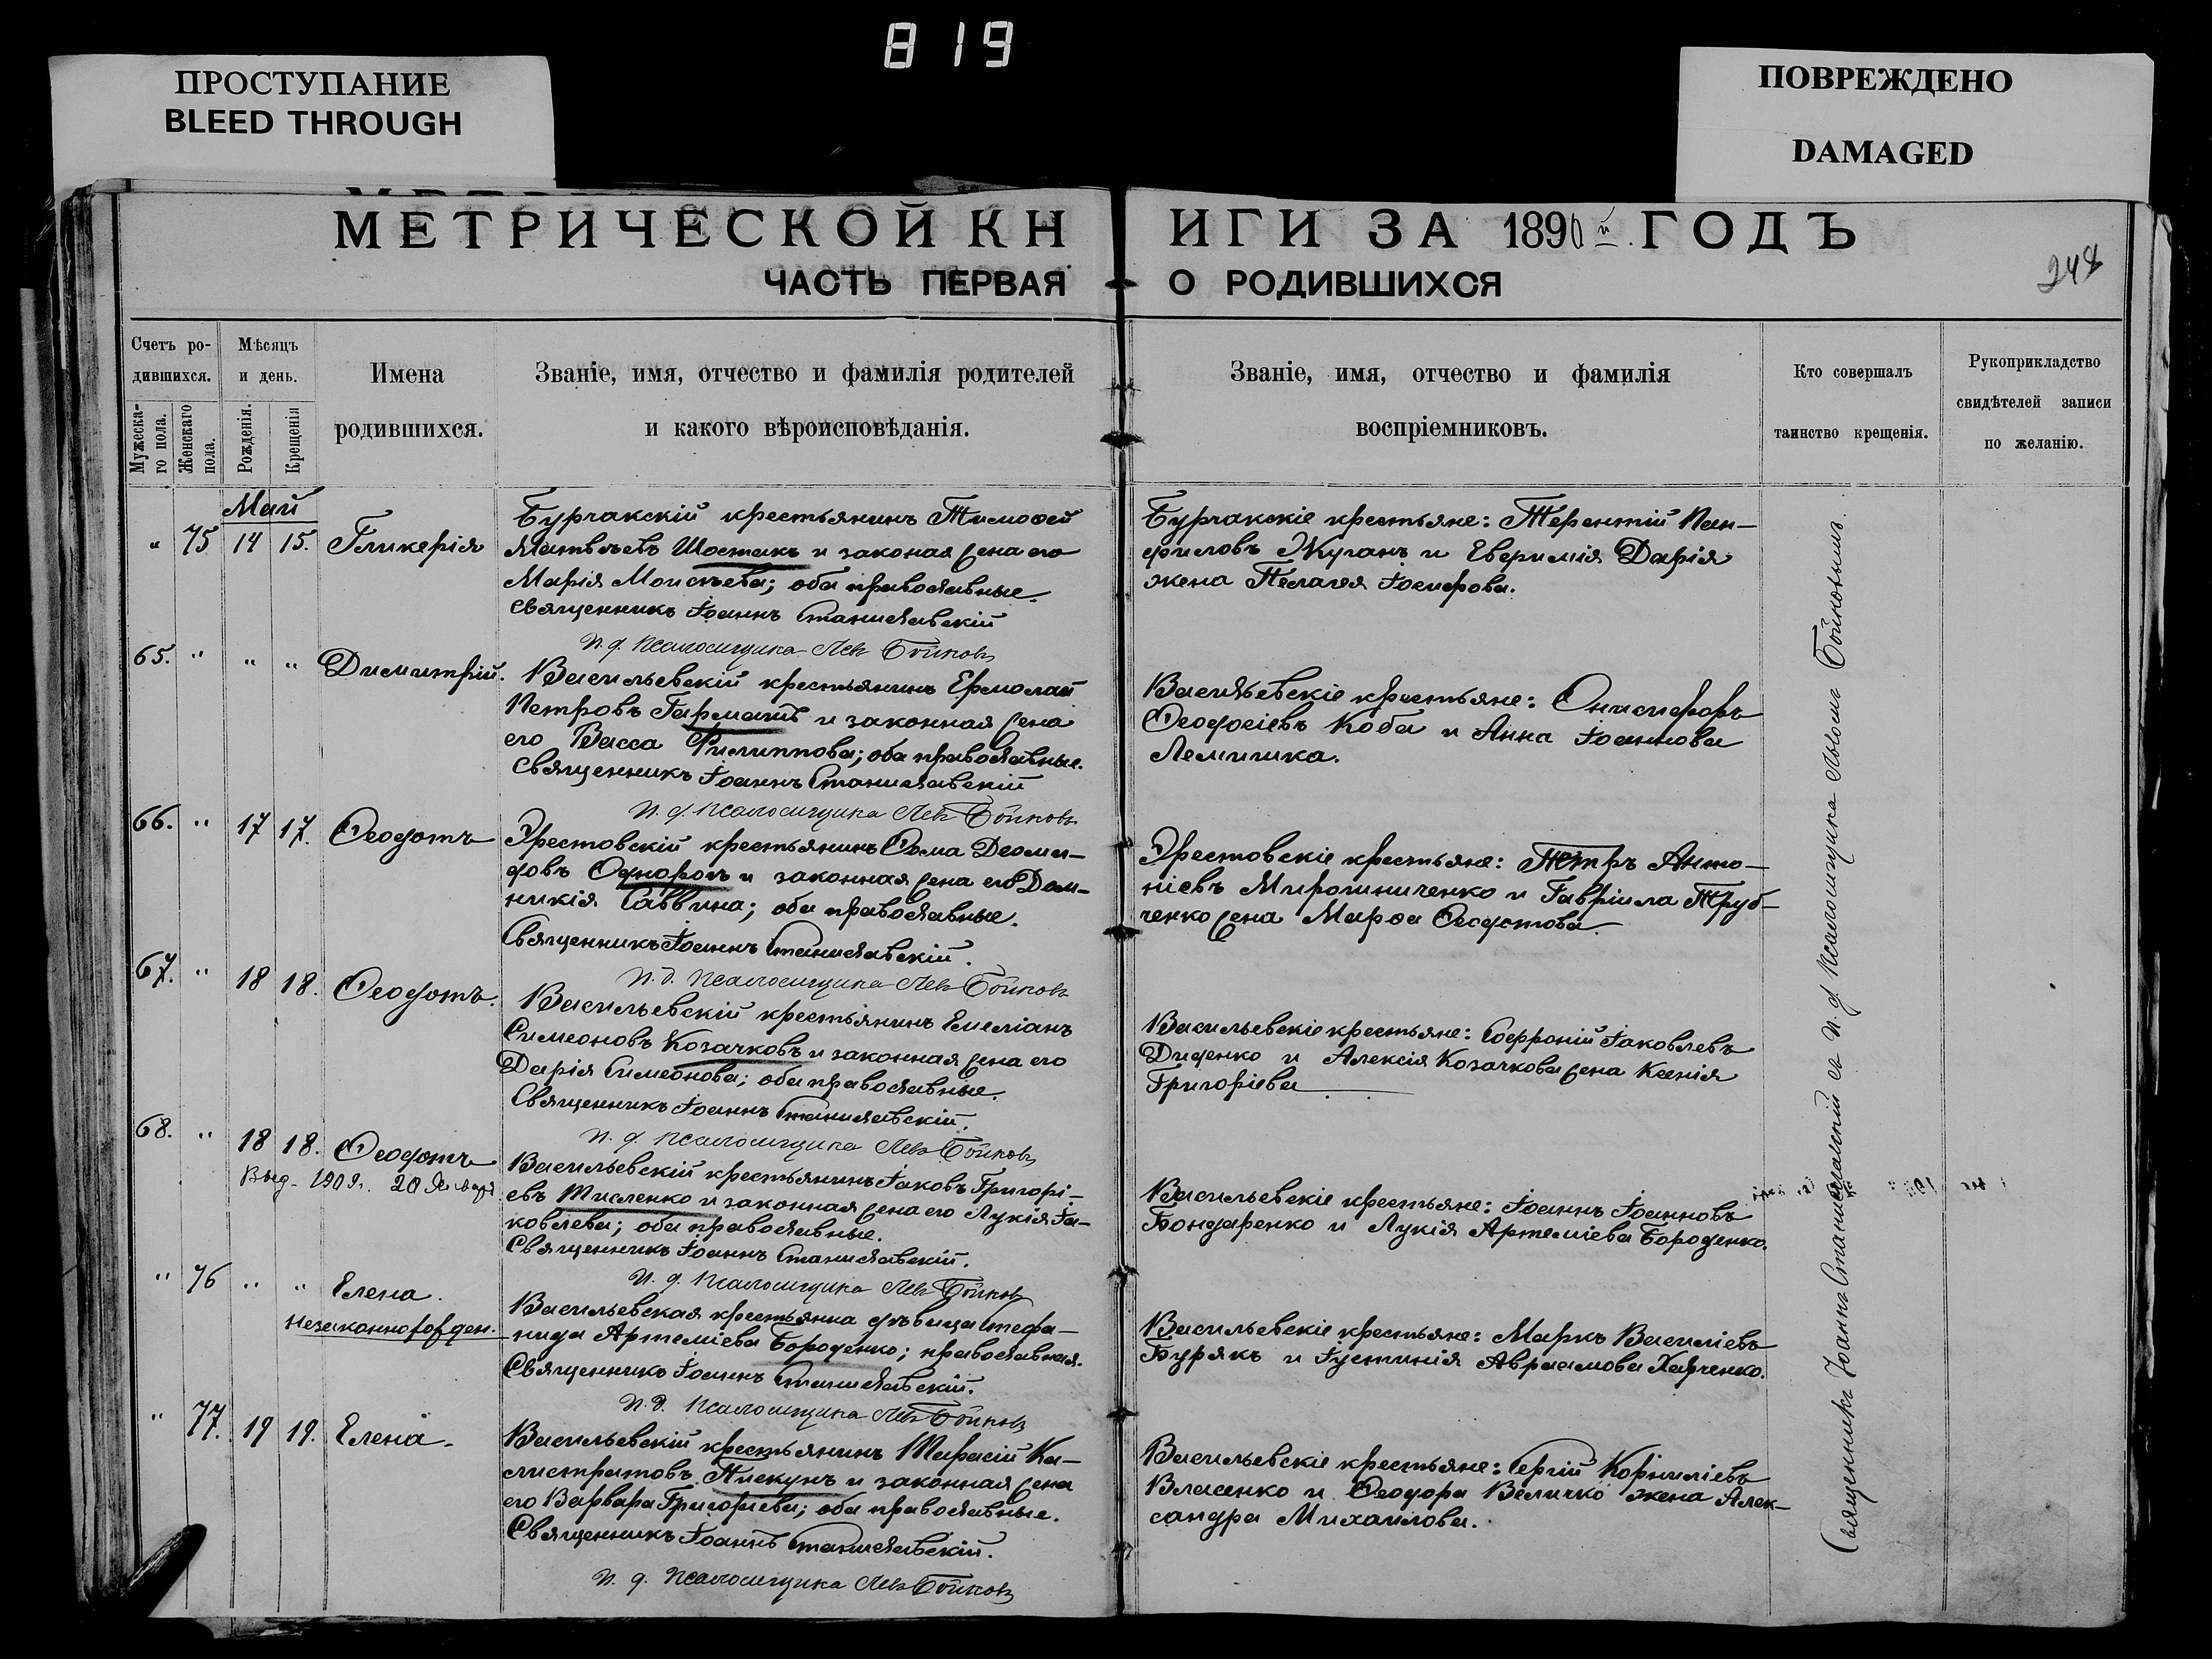 819
ПРОСТУПАНИЕ
BLEED THROUGH
ПОВРЕЖДЕНО
DAMAGED
МЕТРИЧЕСКОЙ КНИГИ ЗА 1890й ГОДЪ
ЧАСТЬ ПЕРВАЯ О РОДИВШИХСЯ
248
Счетъ ро-
дившихся.
Мужеска-
го пола.
Женскаго
пола.
Мѣсяцъ
и день.
Рожденія.
Крещенія
Имена
родившихся.
Званіе, имя, отчество и фамилія родителей
и какого вѣроисповѣданія.
Званіе, имя, отчество и фамилія
воспріемниковъ.
Кто совершалъ
таинство крещенія.
Рукоприкладство
свидѣтелей записи
по желанію.
Май
" 75 14 15. Гликерія
Бурчакскій крестьянинъ Тимофей
Матвѣевъ Шостакъ и законая жена его
Марія Моисѣева; оба православные.
Священникъ Іоаннъ Станиславскій
И. д. Псаломщика Левъ Бойковъ
Бурчакскіе крестьяне: Терентій Пан-
филовъ Жуганъ и Дарія
жена Пелагея Іосифова.
65. " " " Димитрій.
Васильевскій крестьянинъ Ермолай
Петровъ Гармашъ и законная жена
его Васса Филиппова; оба православные.
Священникъ Іоаннъ Станиславскій
И. д. Псаломщика Левъ Бойковъ
Васильевскіе крестьяне: Онисифоръ
Ѳеодосіевъ Коба и Анна Іоаннова
Лемишка.
66. " 17 17. Ѳеодотъ
Эрестовскій крестьянинъ Ѳома Деоми-
довъ Однорогъ и законная жена его Дом-
никія Саввина; оба православные.
Священникъ Іоаннъ Станиславскій.
И. д. Псаломщика Левъ Бойковъ
Эрестовскіе крестьяне: Петръ Анто-
ніевъ Мирошниченко и Гавріила Труб-
ченко жена Марѳа Ѳеодотова.
67. " 18 18. Ѳеодотъ.
Васильевскій крестьянинъ Емеліанъ
Симеоновъ Козачковъ и законная жена его
Дарія Симеонова; оба православные.
Священникъ Іоаннъ Станиславскій.
И. д. Псаломщика Левъ Бойковъ
Васильевскіе крестьяне: Софроній Іаковлевъ
Диденко и Алексія Козачкова жена Ксенія
Григоріева
68. " 18 18. Ѳеодотъ
Выд. 1909г. 20 Января
Васильевскій крестьянинъ Іаковъ Григорі-
евъ Тисленко и законная жена его Лукія Іа-
ковлева; оба православные.
Священникъ Іоаннъ Станиславскій.
И. д. Псаломщика Левъ Бойковъ
Васильевскіе крестьяне: Іоаннъ Іоанновъ
Бондаренко и Лукія Артеміева Бороденко.
" 76 " " Елена.
незаконнорожден.
Васильевская крестьянка дѣвица Стефа-
нида Артеміева Бороденко; православная.
Священникъ Іоаннъ Станиславскій.
И. д. Псаломщика Левъ Бойковъ
Васильевскіе крестьяне: Маркъ Василіевъ
Бурякъ и Іустинія Авраамова Харченко.
" 77. 19 19. Елена.
Васильевскій крестьянинъ Тарасій Ка-
листратовъ Пискунъ и законная жена
его Варвара Григоріева; оба православные.
Священникъ Іоаннъ Станиславскій.
И. д. Псаломщика Левъ Бойковъ
Васильевскіе крестьяне: Сергій Корниліевъ
Власенко и Ѳеодора Величко жена Алек-
сандра Михаилова.
Священникъ Іоаннъ Станиславскій съ и. д. Псаломщика Львомъ Бойковымъ.